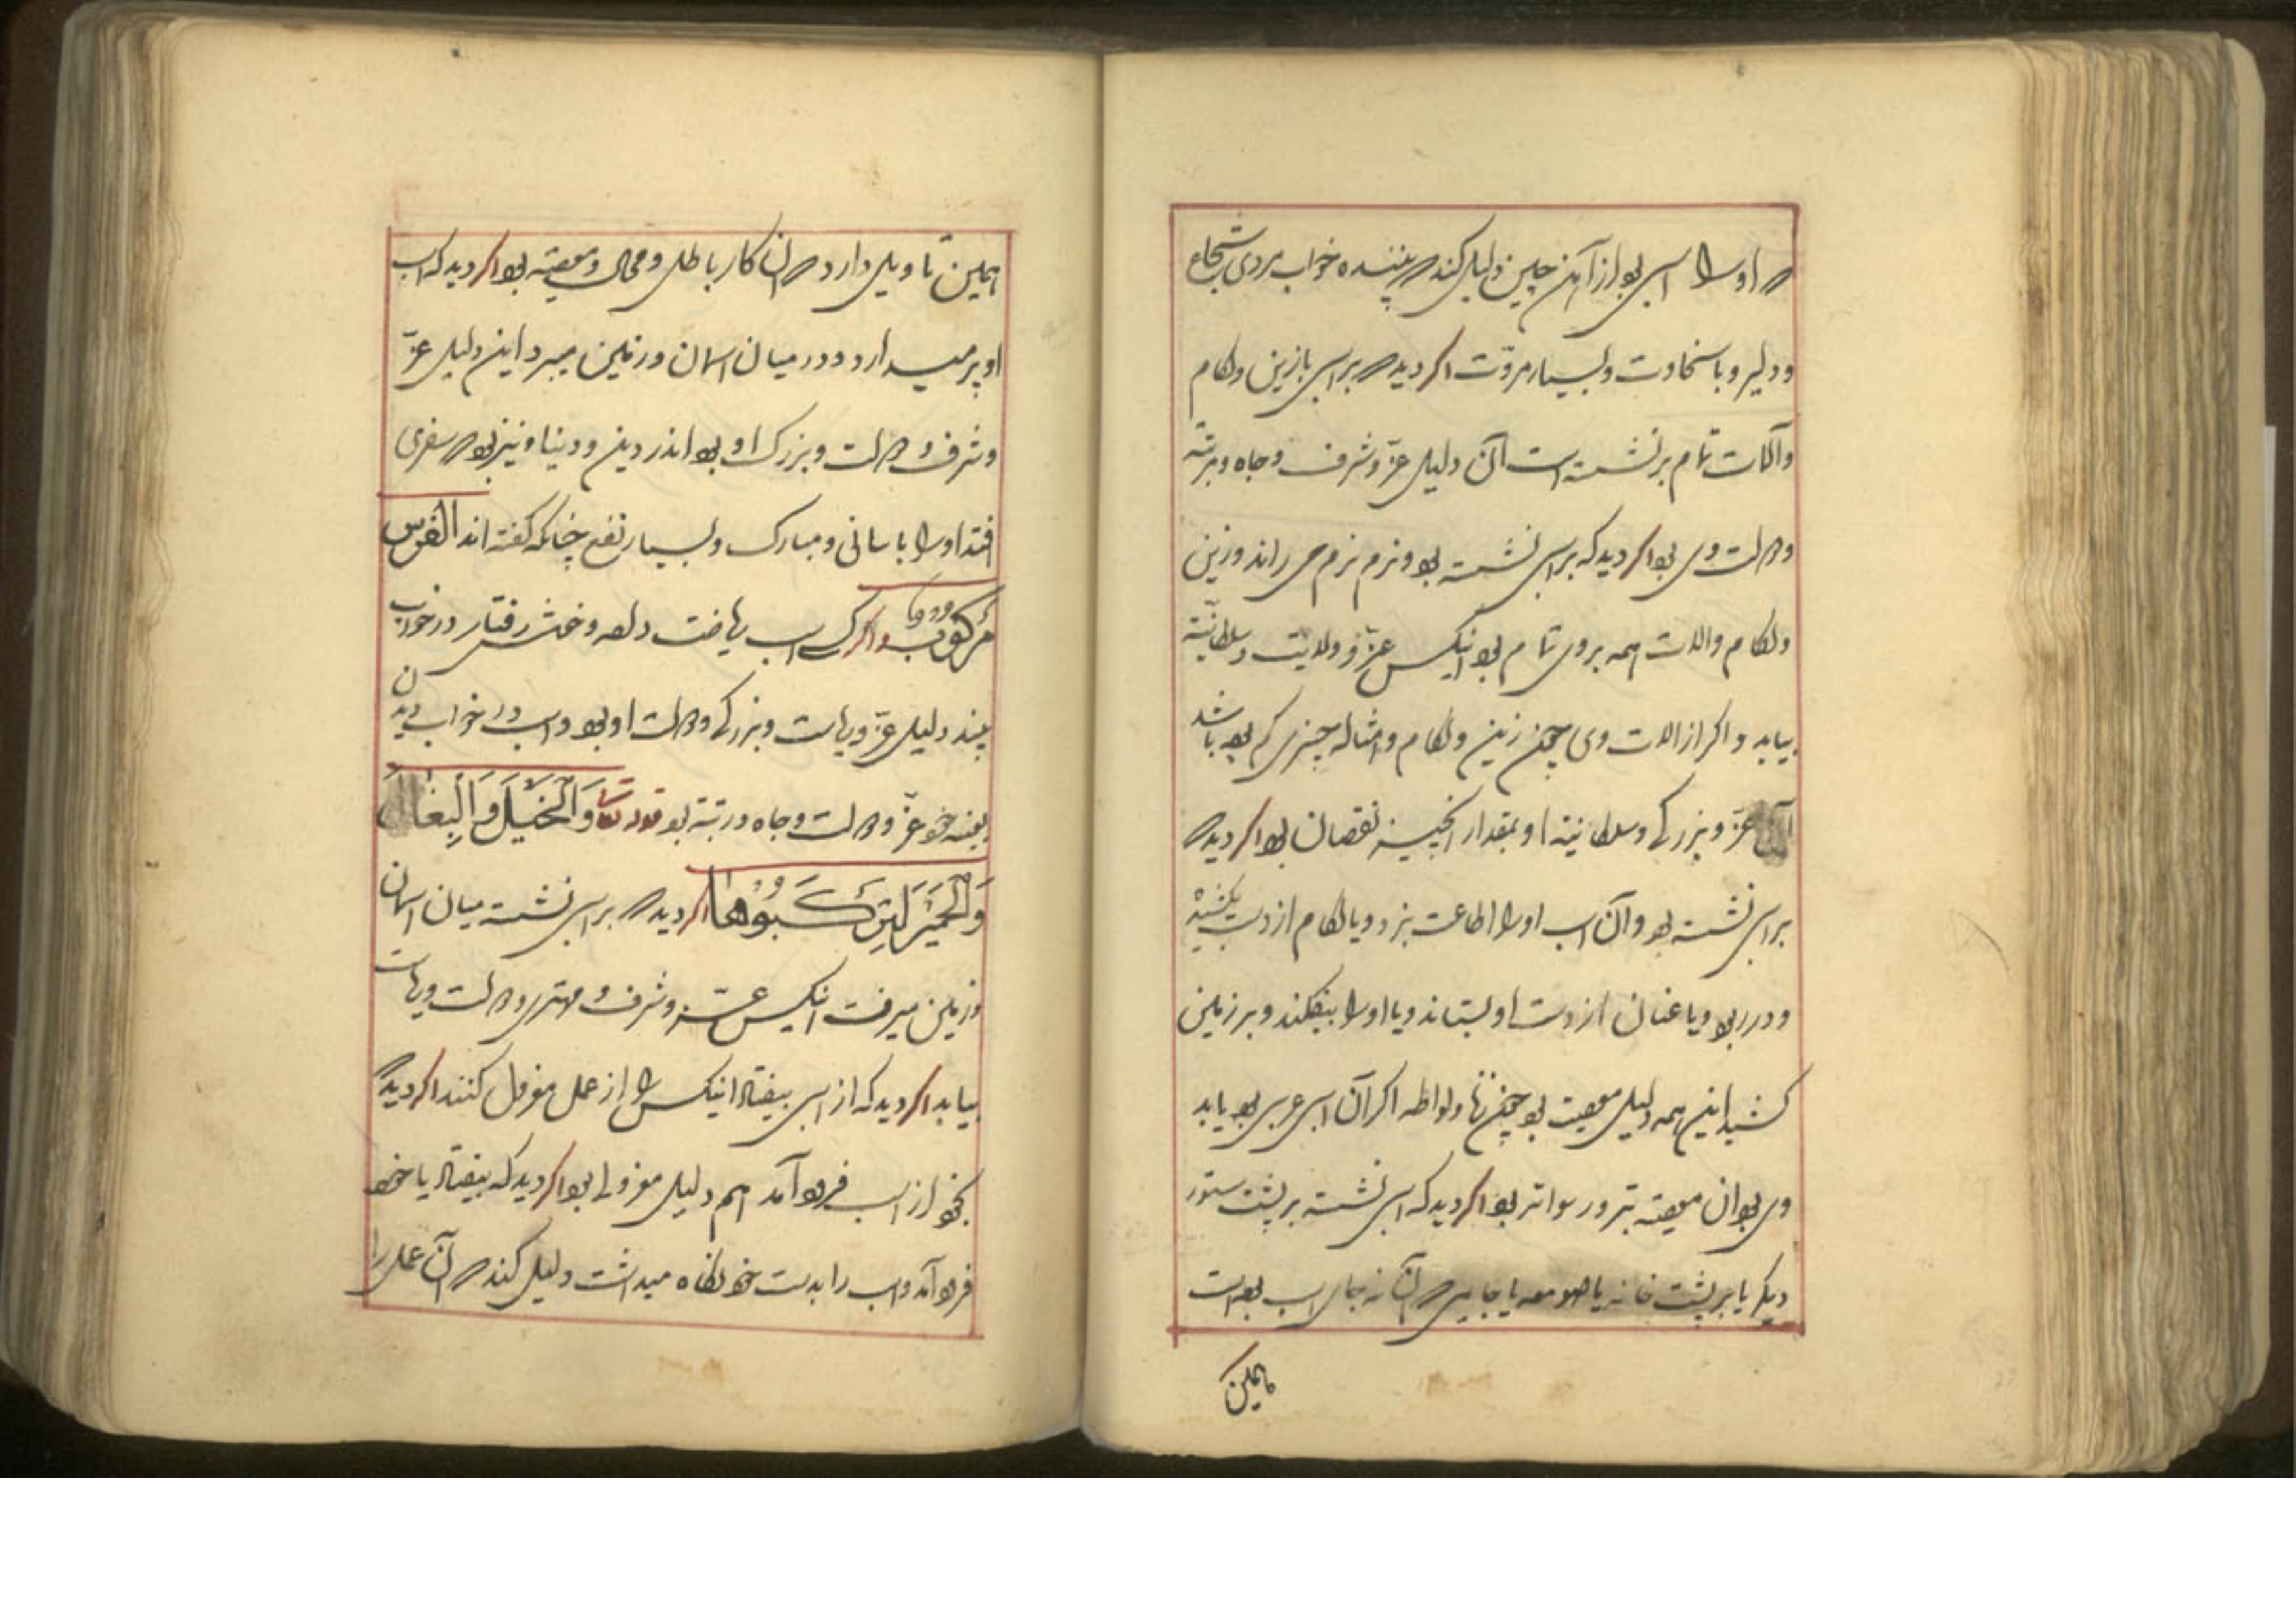 که او را اسبی بود از آهن چین دلیل کند که بیننده خواب مردی شجاع
ودلیر و با سخاوت و بسیار مروّت اگر دید که بر اسبی با زین ولگام
وآلات تمام بر نشسته است آن دلیل عزّ و شرف و جاه و مرتبه
ودولت وی بود اگر دید که بر اسبی نشسته بود و نرم نرم می راند وزین
ولگام والات همه بروی تمام بود آنکس عزّ و ولایت و سلطانیّت
بیابد و اگر از الات وی چون زین و لگام و امثاله چیزی کم بود باشد
آن عزّ و بزرگی و سلطانیت او بمقدار آنچیز نقصان بود اگر دید که
بر اسبی نشسته بود و آن اسب او را اطاعت نبرد و یا لگام از دست بکشیده
و در ربود و یا عنان از دست او بستاند و یا او را بیفکند و بر زمین
کشید این همه دلیل معصیت بود چون زنا و لواطه اگر آن اسبی عربی بود باید
وی بود آن معصیت بتر و رسواتر بود اگر دید که اسبی نشسته بر پشت ستور
دیگر یا بر پشت خانه یا صومعه یا جایی که آن نه جای اسب بوده است
همین
همین تاویل دارد که آن کار باطل و محال و معصیت بود اگر دید که اسب
او پر میدارد و در میان اسمان و زمین میپرد این دلیل عزّ
وشرف و دولت و بزرگ او بود اندر دین و دنیا و نیز بود که سفری
افتد او را باسانی و مبارک و بسیار نفع چنانکه گفته اند الفرس
مرکوب واگر کسی اسب ریاضت داده و خوش رفتار در خواب
بیند دلیل عزّ و ریاست و بزرگی و دولت او بود و اسب در خواب دیدن
بعینه خود عزّ و دولت و جاه و رتبة بود قوله تعالی وَالْخَيْلَ وَالْبِغَالَ
وَالْحَمِيرَ لِتَرْكَبُوهَا اگر دید که بر اسبی نشسته میان اسمان
وزمین میرفت آنکس عزّ و شرف و مهتری و دولت و ریاست
بیابد اگر دید که از اسبی بیفتاد آنکس را از عمل معزول کنند اگر دید که
بخود از اسب فرود آمد هم دلیل معزولی بود اگر دید که بیفتاد یا خود
فرود آمد و اسب را بدست خود نگاه میداشت دلیل کند که آن عمل را